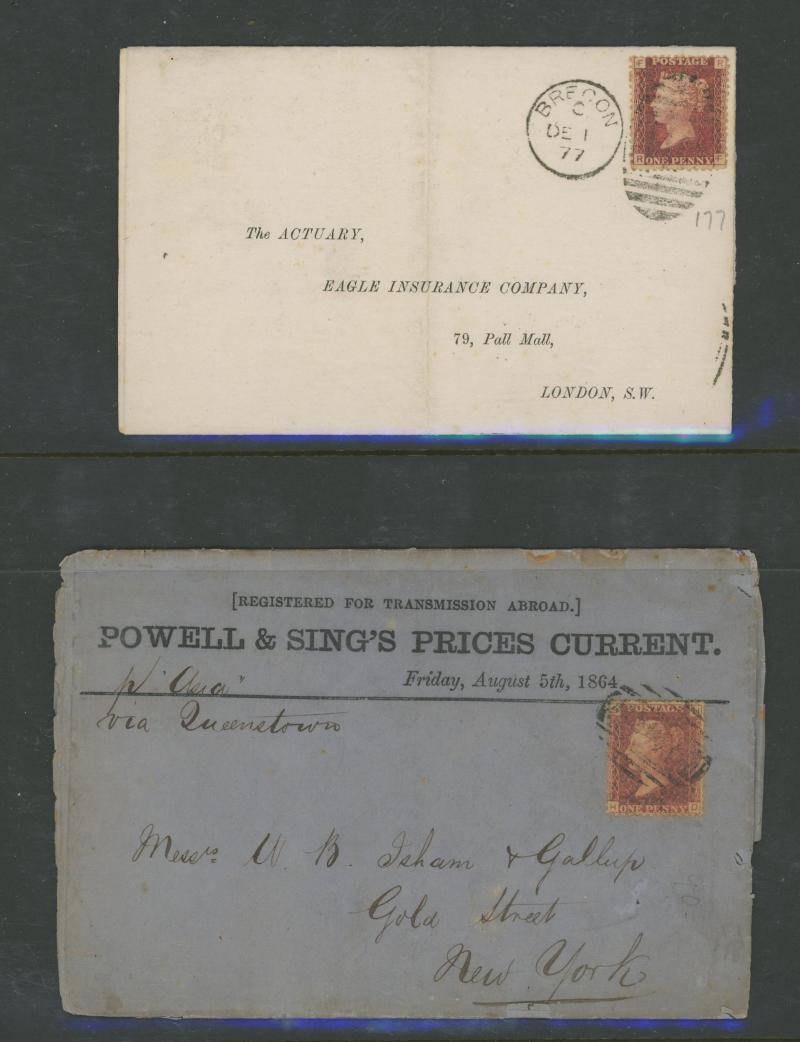 F POSTAGE R
R ONE PENNY F
BRECON
C
DE 1
77
177
The ACTUARY,
EAGLE INSURANCE COMPANY,
79, Pall Mall,
LONDON, S.W.
[REGISTERED FOR TRANSMISSION ABROAD.]
POWELL & SING'S PRICES CURRENT.
Friday, August 5th, 1864
p "Asia"
via Queenstown
POSTAGE H
H ONE PENNY
Messrs W. B. Isham & Gallup
Gold Street
New York